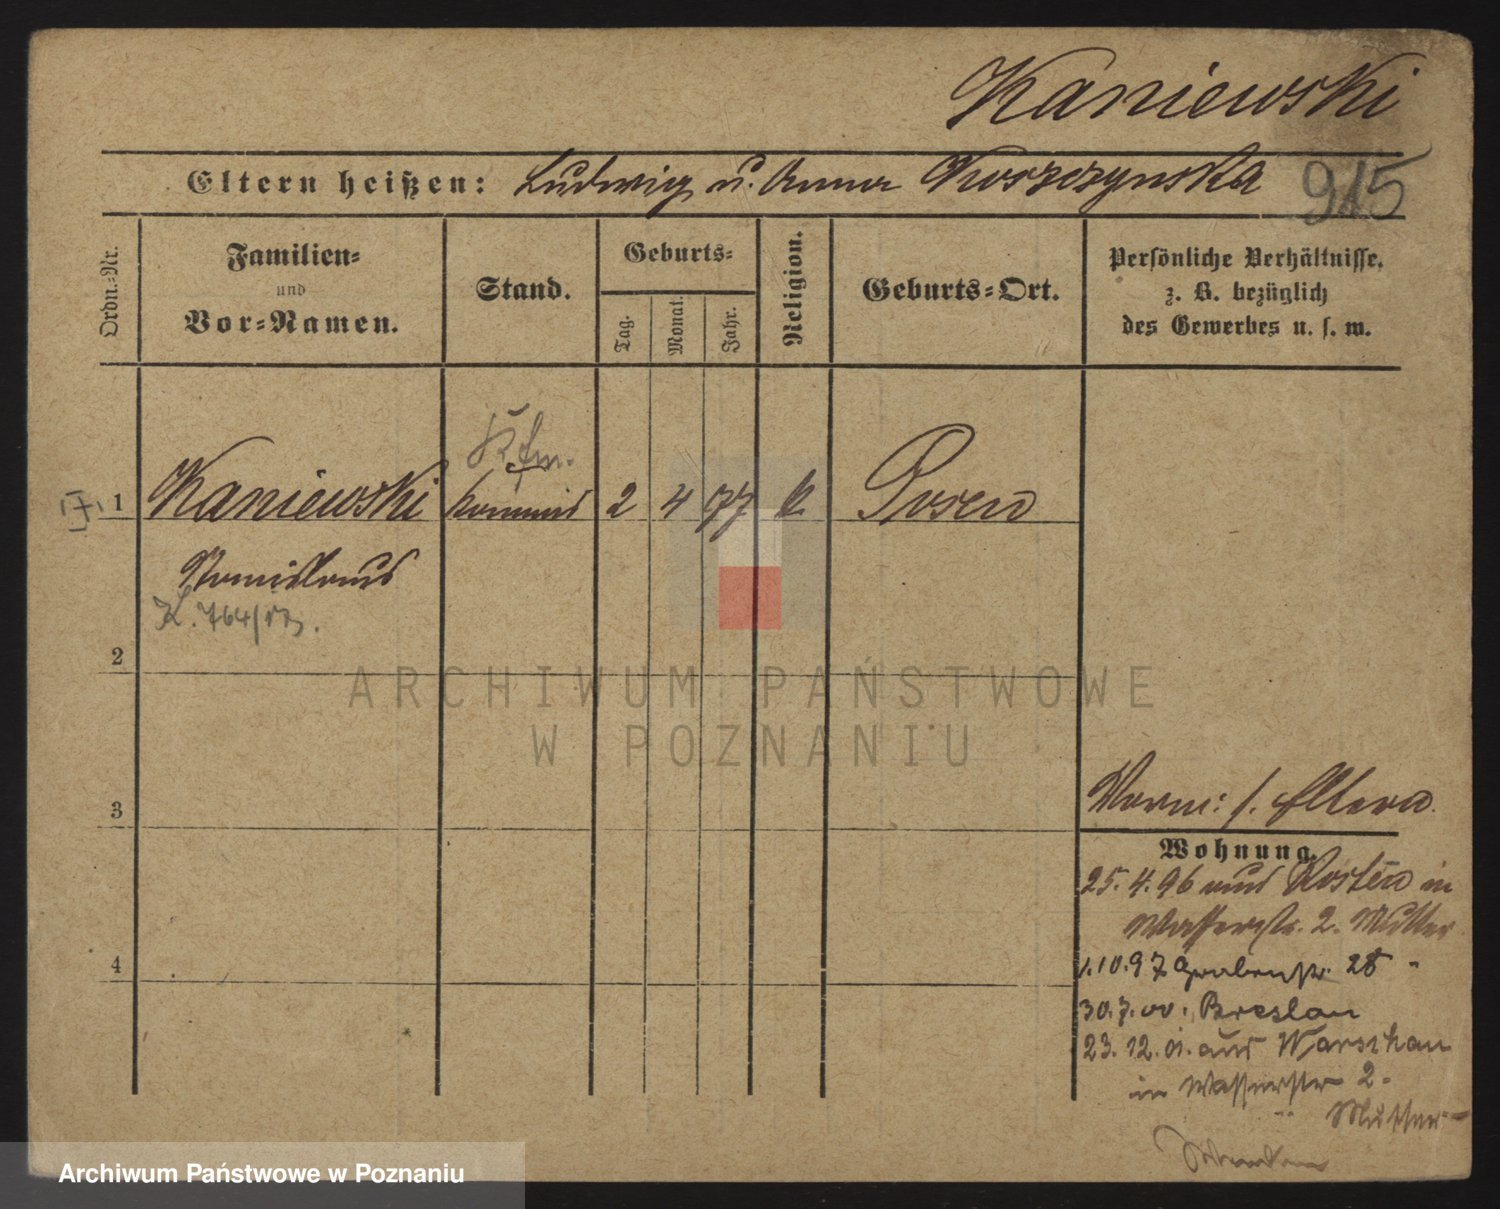 Kaniewski
Eltern heißen: Ludwig u. Anna Kroszczynska
915
Ordn.=Nr.
Familien=
und
Vor=Namen.
Stand.
Geburts=
Tag.
Monat.
Jahr.
Religion.
Geburts=Ort.
Persönliche Verhältnisse,
z. B. bezüglich
des Gewerbes u. s. w.
Kfm.
1 Kaniewski Kommis 2 4 77 k Posen
Stanislaus
K. 764/
2
ARCHIWUM PAŃSTWOWE
W POZNANIU
3
Vorm: s. Eltern
Wohnung.
25.4.96 aus Kosten in
Wasserstr. 2. Mutter
4
1.10.97 Grabenstr. 28 "
30.7.00. Breslau
23.12.01. aus Warschau
in Wasserstr 2.
Mutter
Archiwum Państwowe w Poznaniu